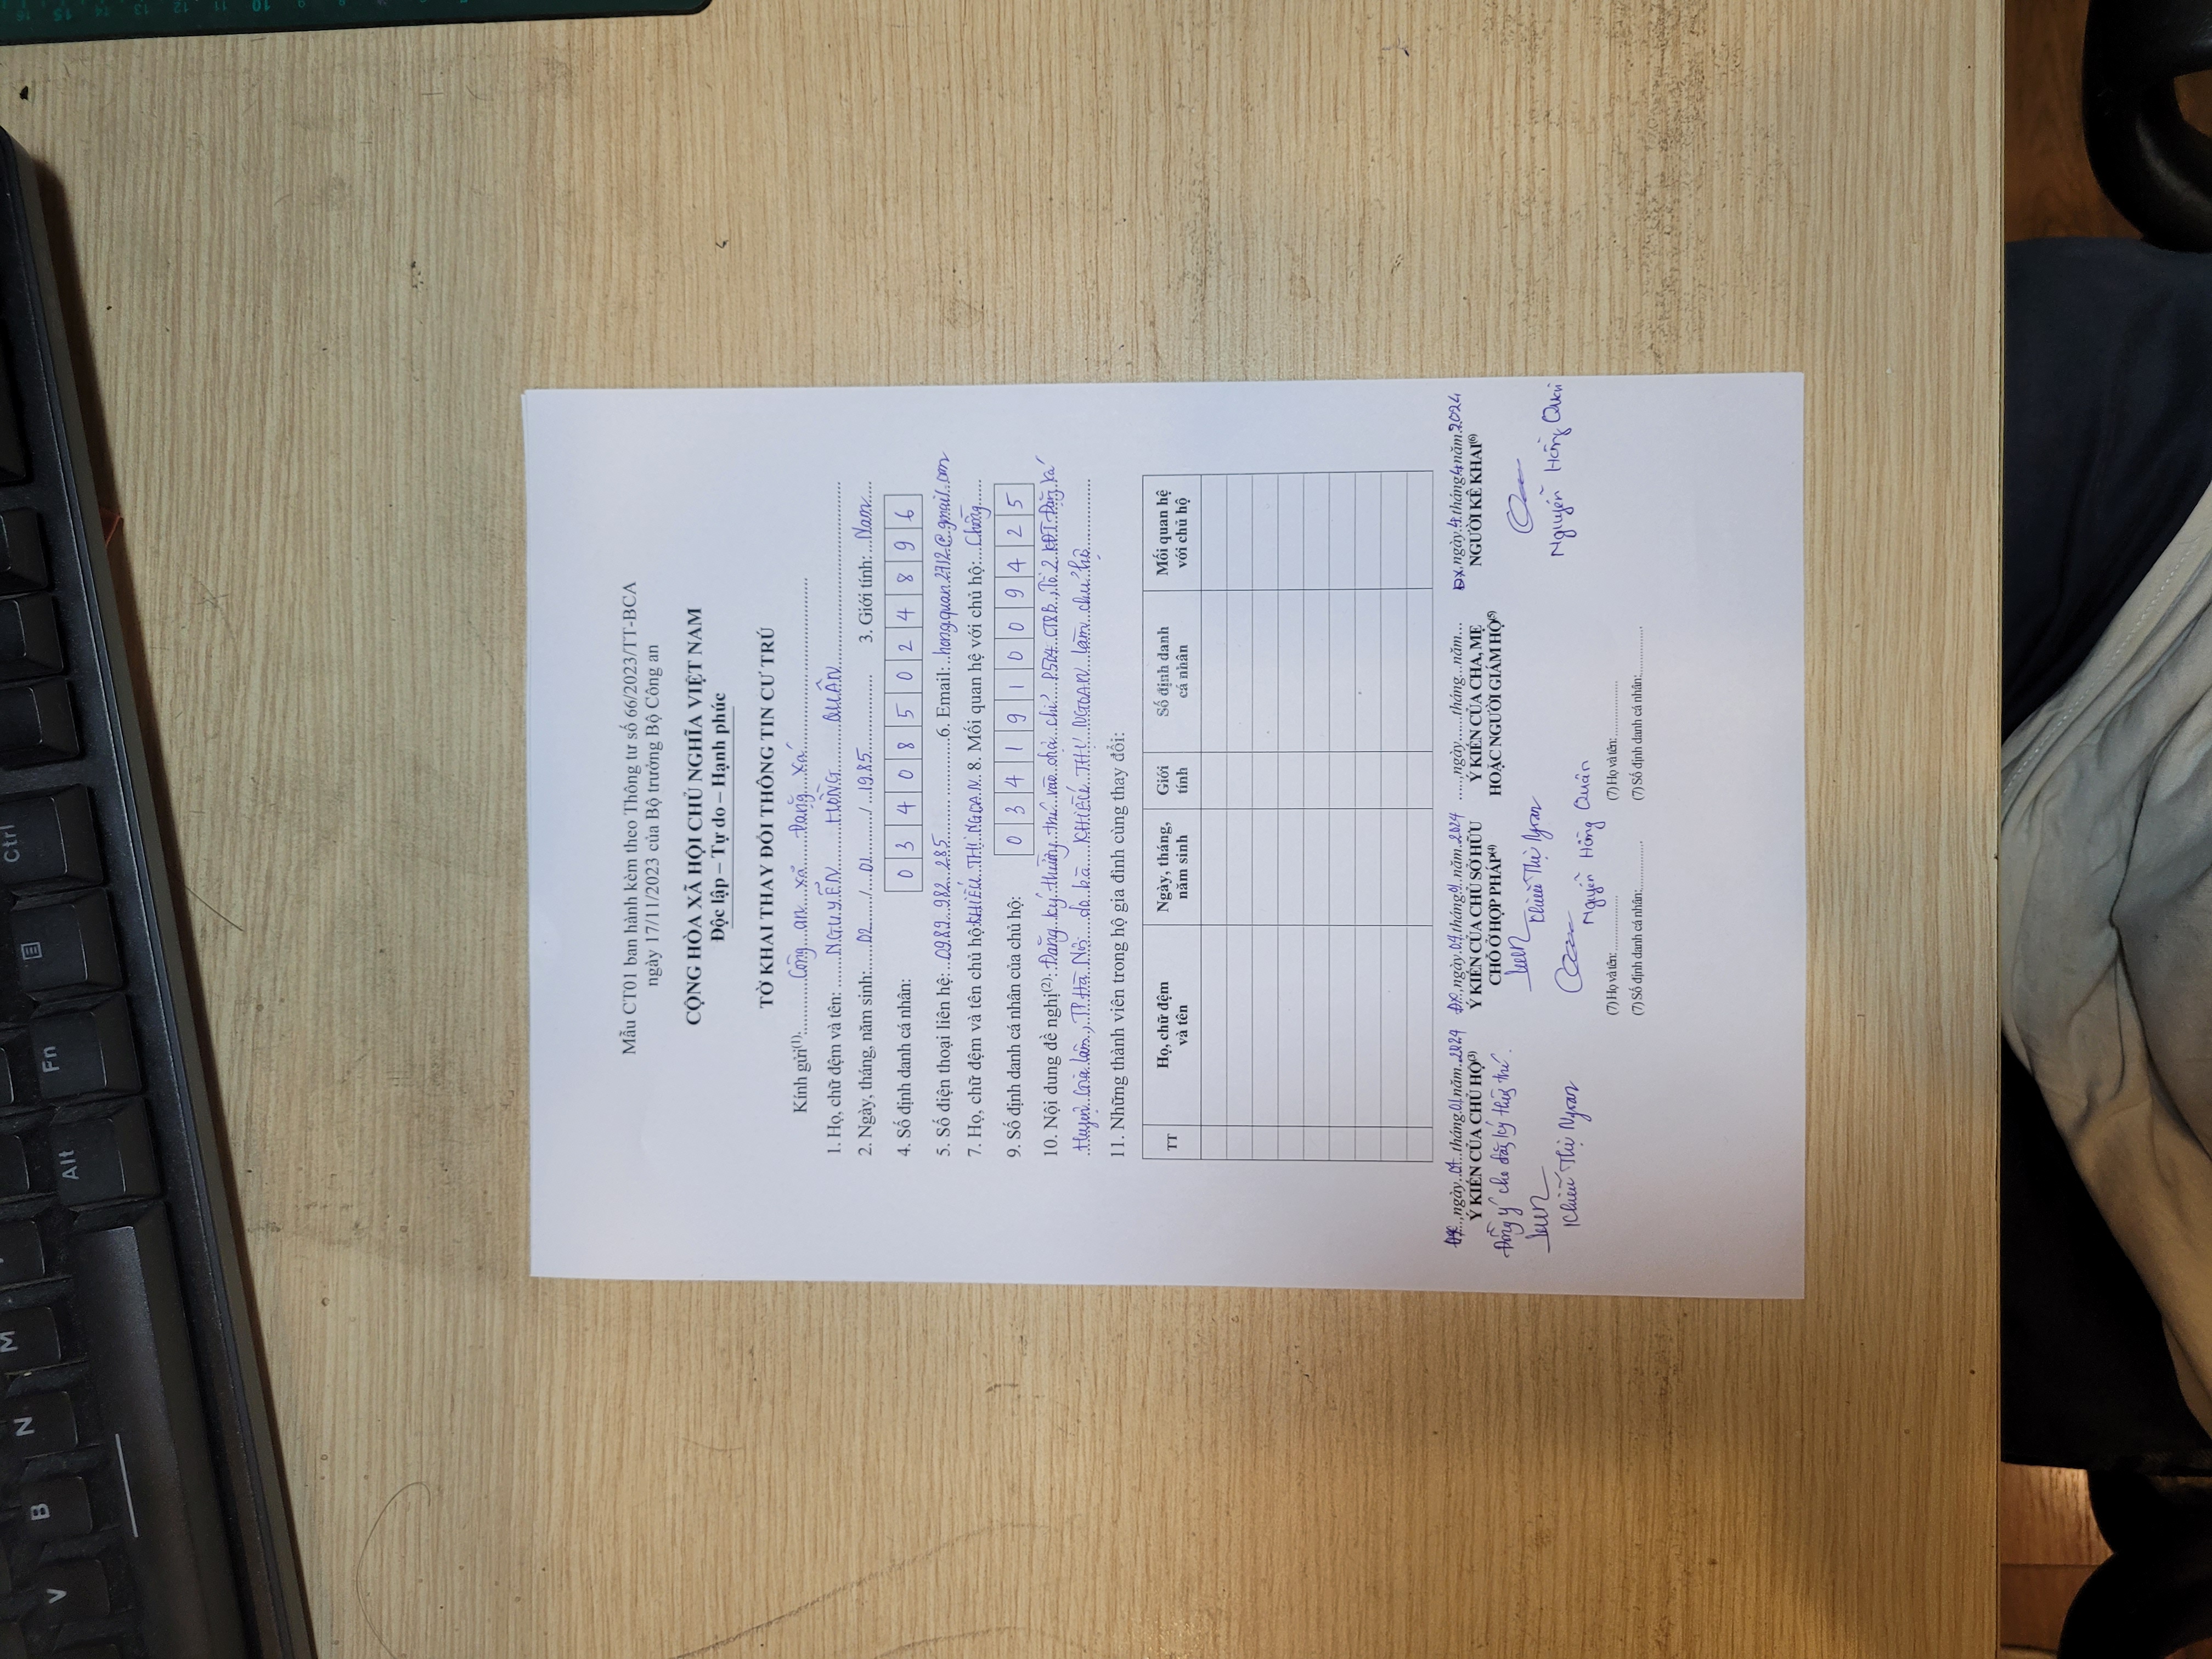 V B N M
Alt Fn Ctrl
Mẫu CT01 ban hành kèm theo Thông tư số 66/2023/TT-BCA
ngày 17/11/2023 của Bộ trưởng Bộ Công an
CỘNG HÒA XÃ HỘI CHỦ NGHĨA VIỆT NAM
Độc lập – Tự do – Hạnh phúc
TỜ KHAI THAY ĐỔI THÔNG TIN CƯ TRÚ
Kính gửi(1): Công an xã Đặng Xá
1. Họ, chữ đệm và tên: NGUYỄN HỒNG QUÂN
2. Ngày, tháng, năm sinh: 02 / 01 / 1985 3. Giới tính: Nam
4. Số định danh cá nhân: 0 3 4 0 8 5 0 2 4 8 9 6
5. Số điện thoại liên hệ: 0989 982 285 6. Email: hongquan2712@gmail.com
7. Họ, chữ đệm và tên chủ hộ: KHIẾU THỊ NGOAN 8. Mối quan hệ với chủ hộ: Chồng
9. Số định danh cá nhân của chủ hộ: 0 3 4 1 9 1 0 0 9 4 2 5
10. Nội dung đề nghị(2): Đăng ký thường trú vào địa chỉ P504 CT8B, Tổ 2 KĐT Đặng Xá
Huyện Gia Lâm, TP Hà Nội do bà KHIẾU THỊ NGOAN làm chủ hộ
11. Những thành viên trong hộ gia đình cùng thay đổi:
TT Họ, chữ đệm và tên Ngày, tháng, năm sinh Giới tính Số định danh cá nhân Mối quan hệ với chủ hộ
ĐX, ngày 04 tháng 01 năm 2024 ĐX, ngày 04 tháng 01 năm 2024 ....., ngày......tháng...năm... ĐX, ngày 4 tháng 4 năm 2024
Ý KIẾN CỦA CHỦ HỘ(3) Ý KIẾN CỦA CHỦ SỞ HỮU Ý KIẾN CỦA CHA, MẸ NGƯỜI KÊ KHAI(6)
CHỖ Ở HỢP PHÁP(4) HOẶC NGƯỜI GIÁM HỘ(5)
Đồng ý cho đăng ký thường trú.
Khiếu Thị Ngoan Khiếu Thị Ngoan Nguyễn Hồng Quân
Nguyễn Hồng Quân
(7) Họ và tên: .................. (7) Họ và tên: ..................
(7) Số định danh cá nhân:............... (7) Số định danh cá nhân:...............